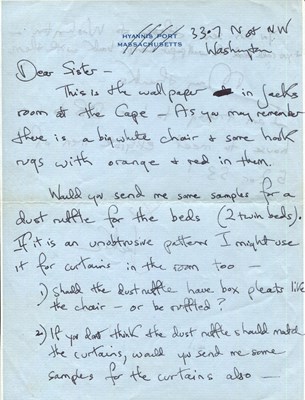 HYANNIS PORT
MASSACHUSETTS
3307 N St NW
Washington
Dear Sister -
This is the wallpaper in Jack's
room at the Cape - As you may remember
there is a big white chair & some hook
rugs with orange & red in them.
Would you send me some samples for a
dust ruffle for the beds (2 twin beds).
If it is an unobtrusive pattern I might use
it for curtains in the room too -
1) Should the dust ruffle have box pleats like
the chair - or be ruffled?
2) If you dont think the dust ruffle should match
the curtains, would you send me some
samples for the curtains also -